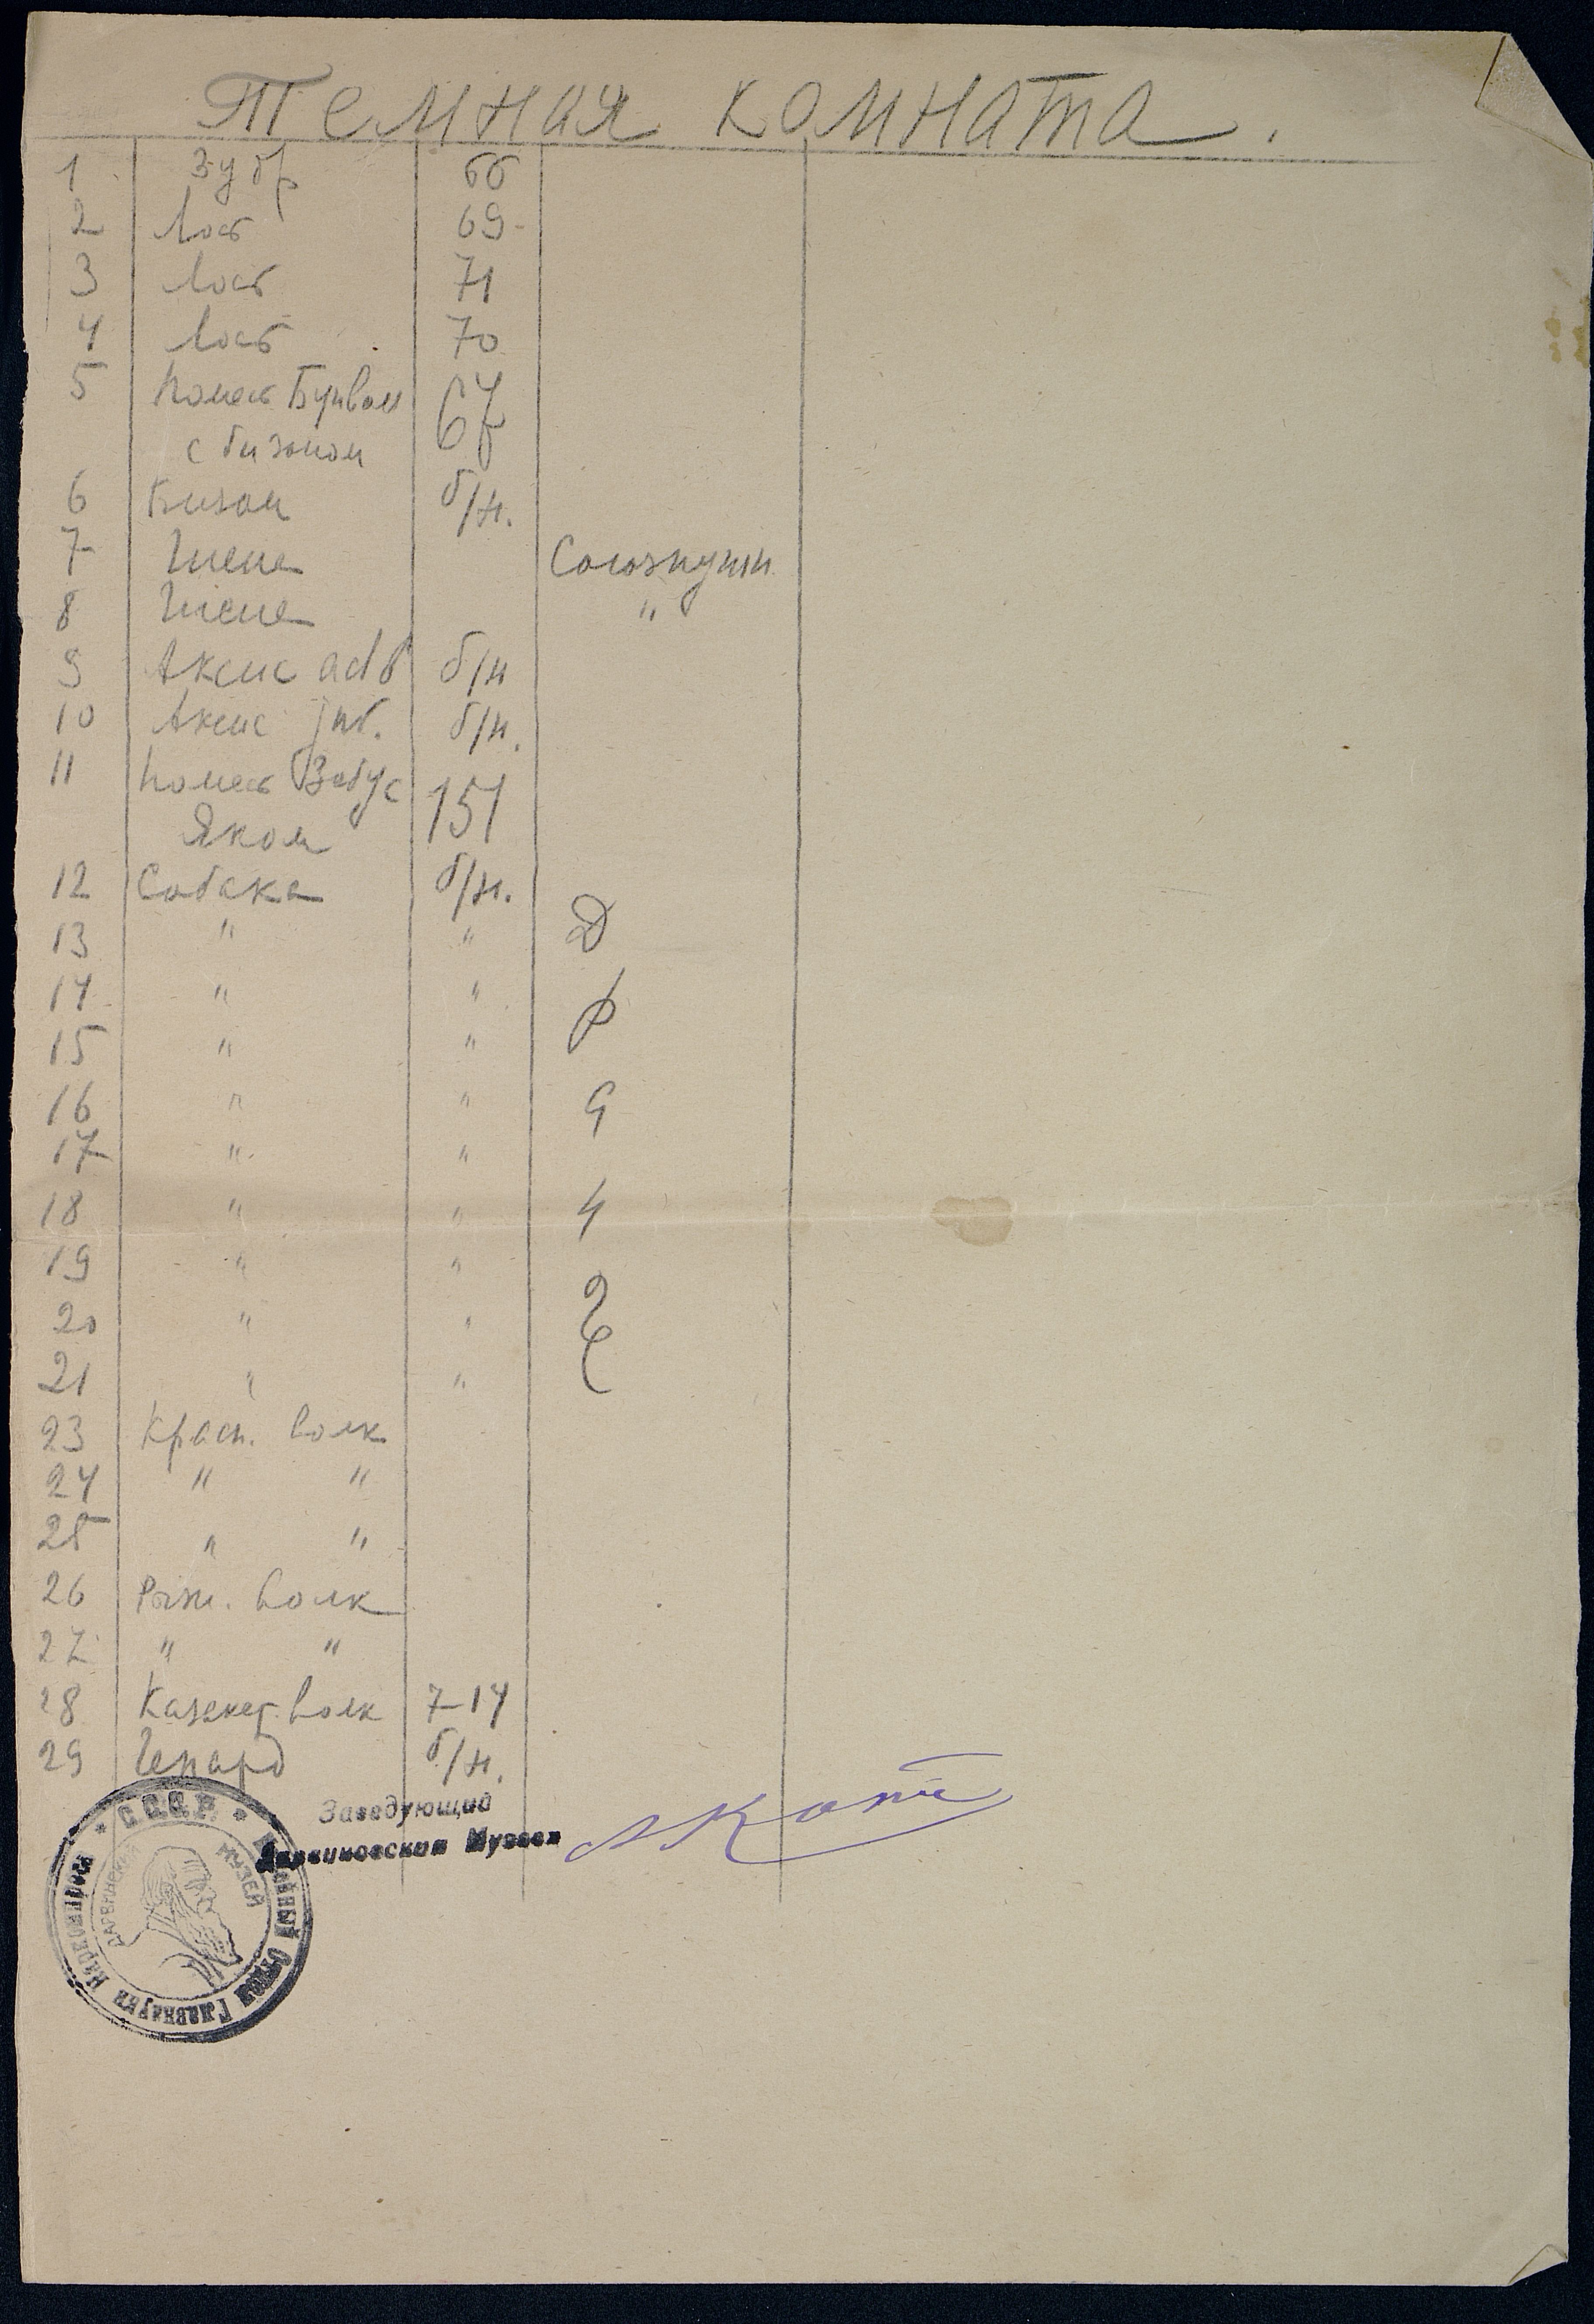 Темная комната.
1 Зубр 66
2 Лось 69
3 Лось 71
4 Лось 70
5 Помесь 67
с бизоном
6 Бизон б/н.
7 Гиена Союзпушн.
8 Гиена "
9 Аксис ad б/н
10 Аксис б/н.
11 Помесь Зебус 151
Яком
12 Собака б/н.
13 " " Д
14 " "
15 " "
16 " "
17 " "
18 " " 4
19 " "
20 " "
21 " "
23 Красн. волк
24 " "
25 " "
26 Рыж. волк
27 " "
28 волк 7-14
29 Гепард б/н.
Заведующий
Дарвиновским Музеем
АКотс
С.С.С.Р. Научный Отдел Главнауки Наркомпроса
ДАРВИНСКИЙ МУЗЕЙ